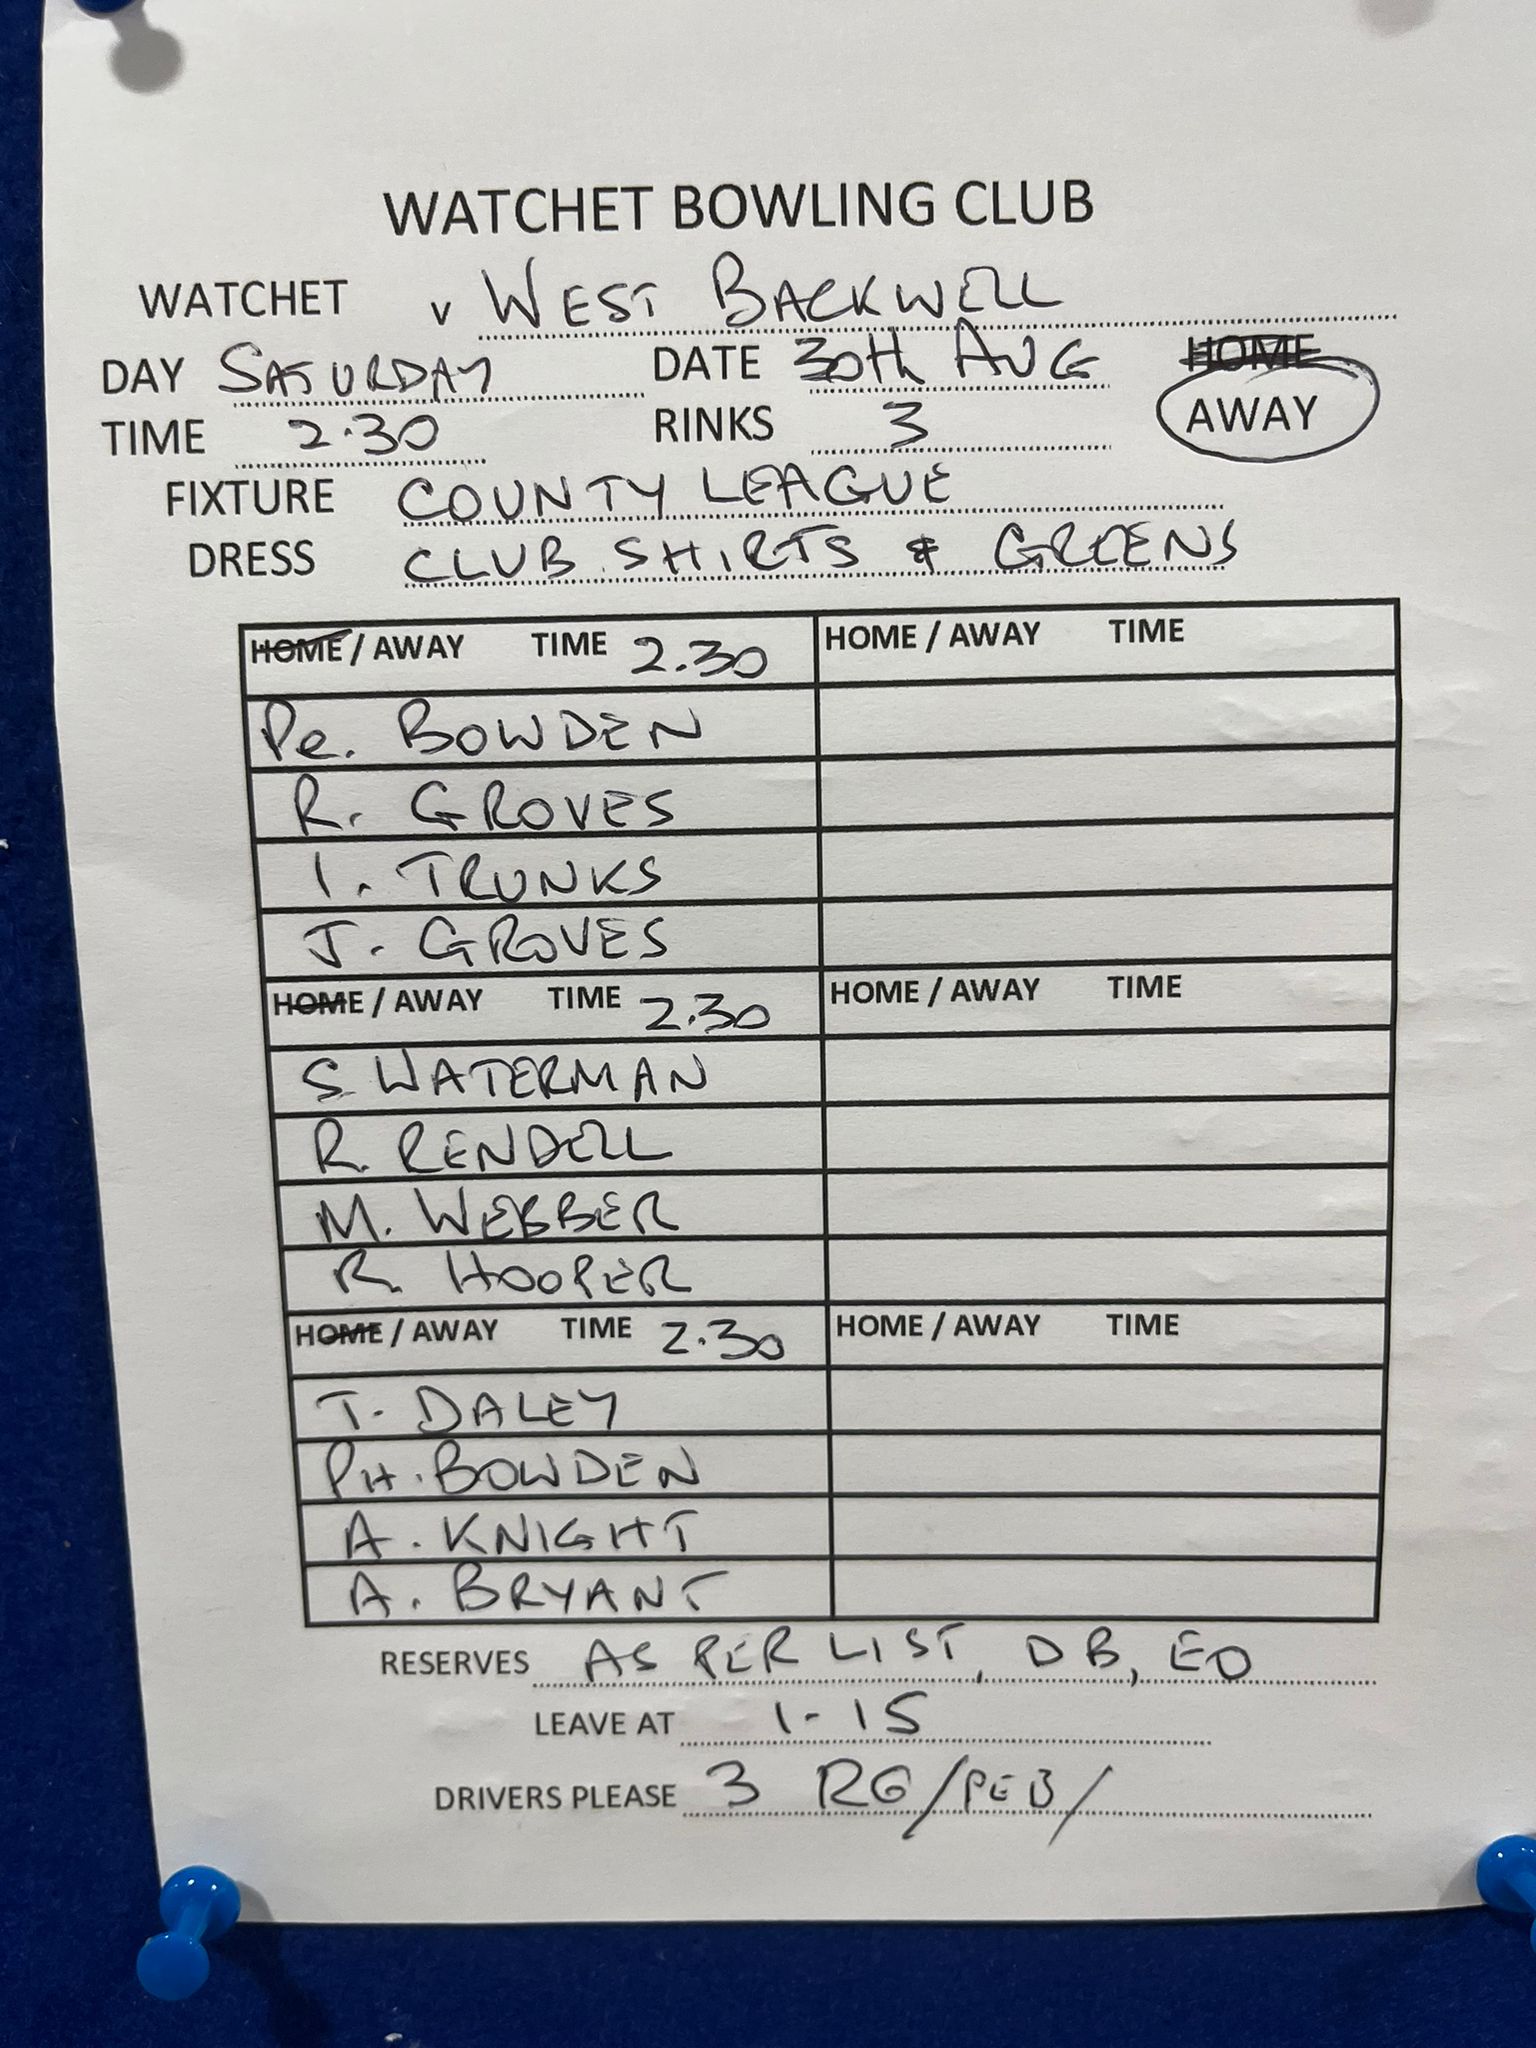 WATCHET BOWLING CLUB
WATCHET v WEST BACKWELL
DAY SATURDAY DATE 30th AUG HOME
TIME 2.30 RINKS 3 AWAY
FIXTURE COUNTY LEAGUE
DRESS CLUB SHIRTS & GREENS
HOME / AWAY TIME 2.30 HOME / AWAY TIME
Pe. BOWDEN
R. GROVES
I. TRUNKS
J. GROVES
HOME / AWAY TIME 2.30 HOME / AWAY TIME
S. WATERMAN
R. RENDELL
M. WEBBER
R. HOOPER
HOME / AWAY TIME 2.30 HOME / AWAY TIME
T. DALEY
PH. BOWDEN
A. KNIGHT
A. BRYANT
RESERVES AS PER LIST, DB, ED
LEAVE AT 1-15
DRIVERS PLEASE 3 RG/PEB/